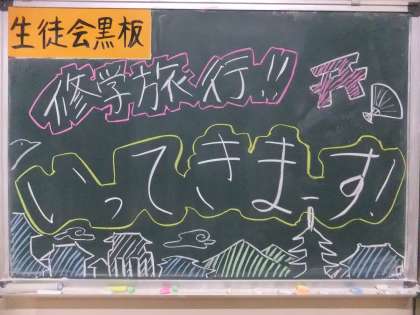 生徒会黒板
修学旅行!!
いってきまーす!